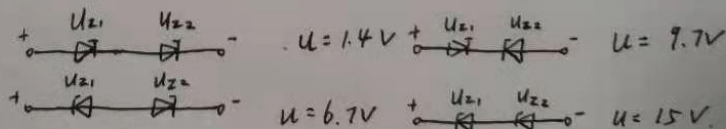 + Uz1 Uz2 - . U = 1.4V + Uz1 Uz2 - U = 9.7V
+ Uz1 Uz2 - U = 6.7V + Uz1 Uz2 - U = 15V